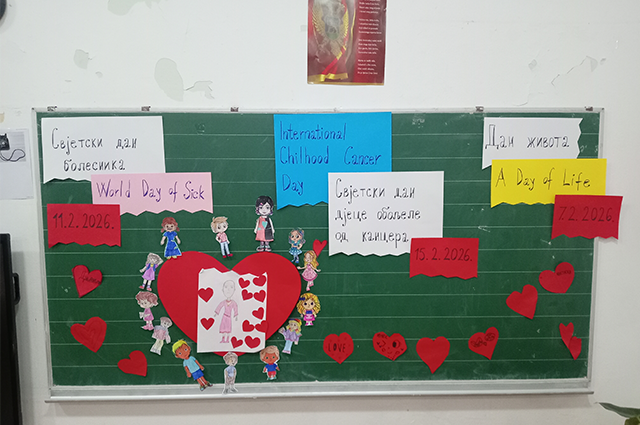 Свјетски дан
болесника
World Day of Sick
11.2.2026.
International
Chilhood Cancer
Day
Свјетски дан
дјеце обољеле
од канцера
15.2.2026.
Дан живота
A Day of Life
7.2.2026.
LOVE